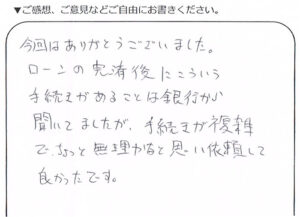 ▼ご感想、ご意見などご自由にお書きください。
今回はありがとうございました。
ローンの完済後にこういう
手続きがあることは銀行から
聞いてましたが、手続きが複雑
で、ちょっと無理かなと思い依頼して
良かったです。